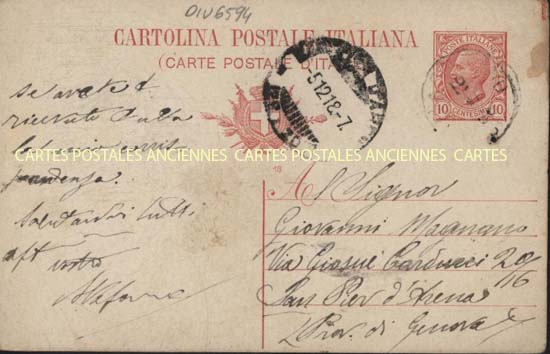 DIV6594
CARTOLINA POSTALE ITALIANA
(CARTE POSTALE D'ITALIE)
POSTE ITALIANE
10 CENTESIMI 10
5·12 18-7
se avete
ricevuto dalla
CARTES POSTALES ANCIENNES CARTES POSTALES ANCIENNES CARTES POSTALES ANCIENNES
Salutandovi tutti
aff vostro
Stefano
18
Al Signor
Giovanni Magnano
Via Giosuè Carducci 20/16
San Pier d'Arena
Prov. di Genova